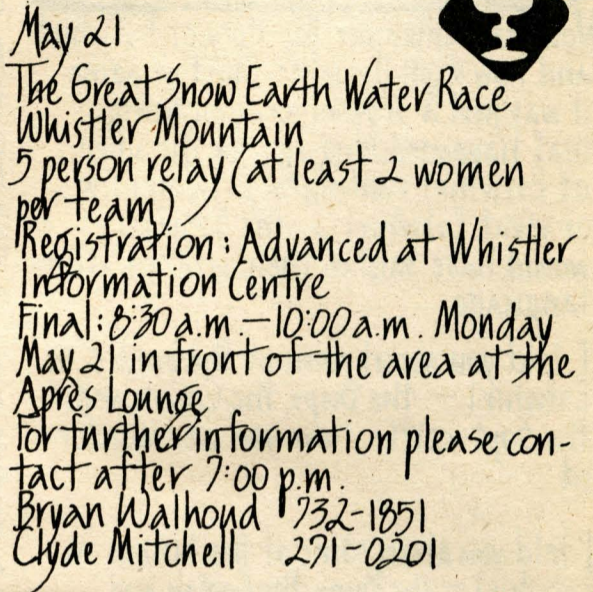 May 21
The Great Snow Earth Water Race
Whistler Mountain
5 person relay (at least 2 women
per team)
Registration: Advanced at Whistler
Information Centre
Final: 8:30 a.m. – 10:00 a.m. Monday
May 21 in front of the area at the
Après Lounge
For further information please con-
tact after 7:00 p.m.
Bryan Walhoud 732-1851
Clyde Mitchell 271-0201